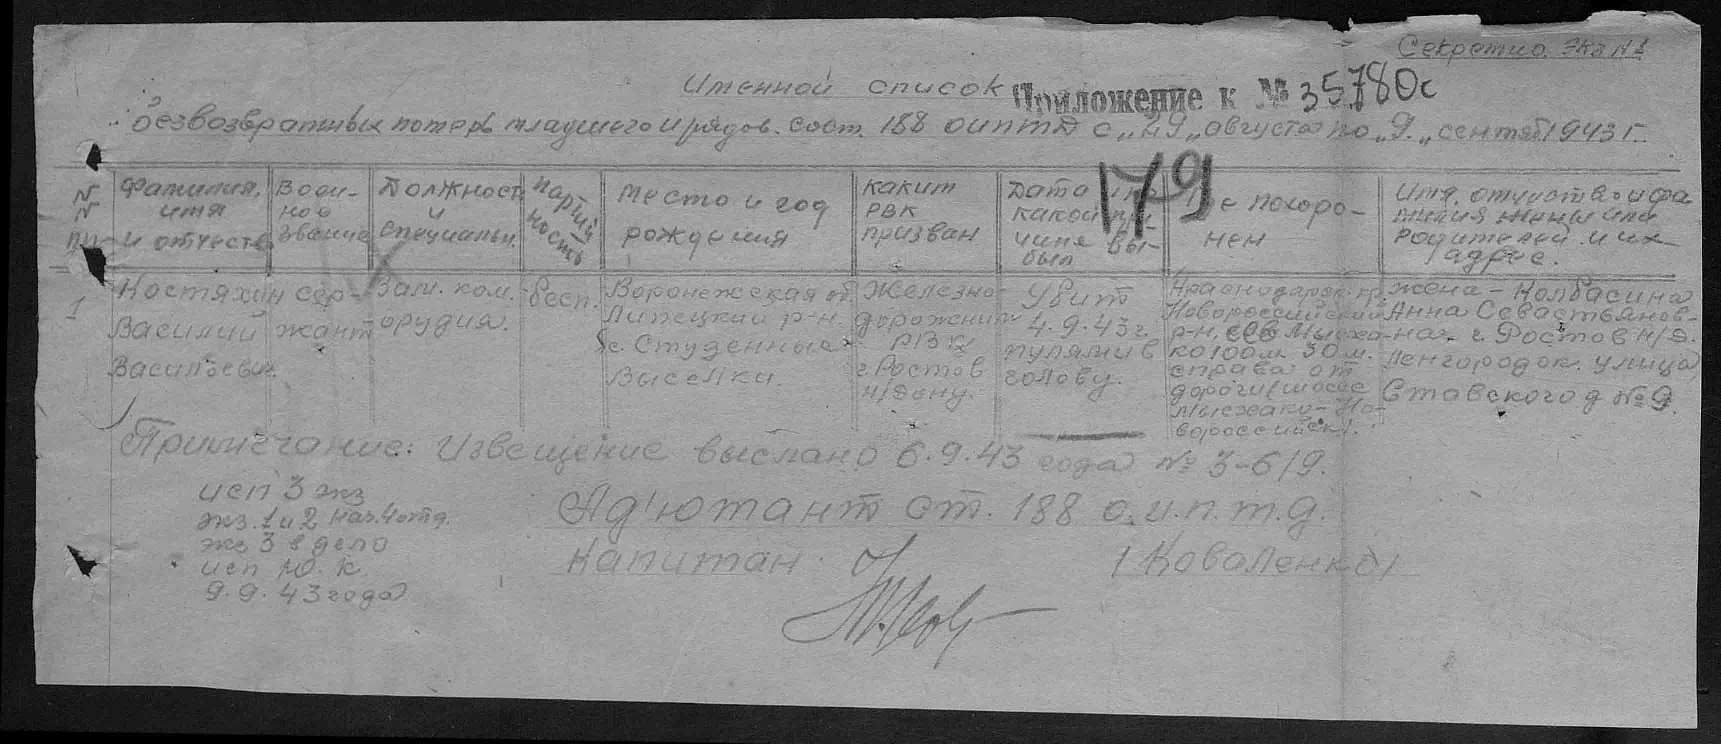 Секретно Экз №1
Именной список
Приложение к № 35780с
безвозвратных потерь младшего и рядов. сост. 188 оиптд с „29„ августа по „9„ сентяб 1943 г.
179
N N пп
фамилия, имя и отчеств
Воен-ное звание
Должност и специальн.
партий ность
Место и год рождения
каким РВК призван
Дата и по какой при чине вы-был
Где похоро-нен
Имя, отчество и фа милия жены или родителей и их адрес.
1
Костяхин Василий Васильевич.
сер-жант
Зам. ком. орудия.
бесп.
Воронежская об Липецкий р-н. с. Студенные Выселки.
Железно-дорожным РВК г. Ростов н/Дону.
Убит 4.9.43 г. пулями в голову.
Краснодарск. кр Новороссийский р-н, Мысха-ко 100 м. 30 м. справа от дороги (шоссе Мысхако-Но-вороссийск).
жена - Колбасина Анна Севастьянов-на г. Ростов н/Д. Ленгородок. улица Ставского д №9.
Примечание: Извещение выслано 6.9.43 года № 3-619.
исп 3 экз
экз. 1 и 2
экз 3 в дело
исп Ю. К.
9.9.43 года
Ад'ютант ст. 188 о.и.п.т.д.
Капитан
/Коваленко/